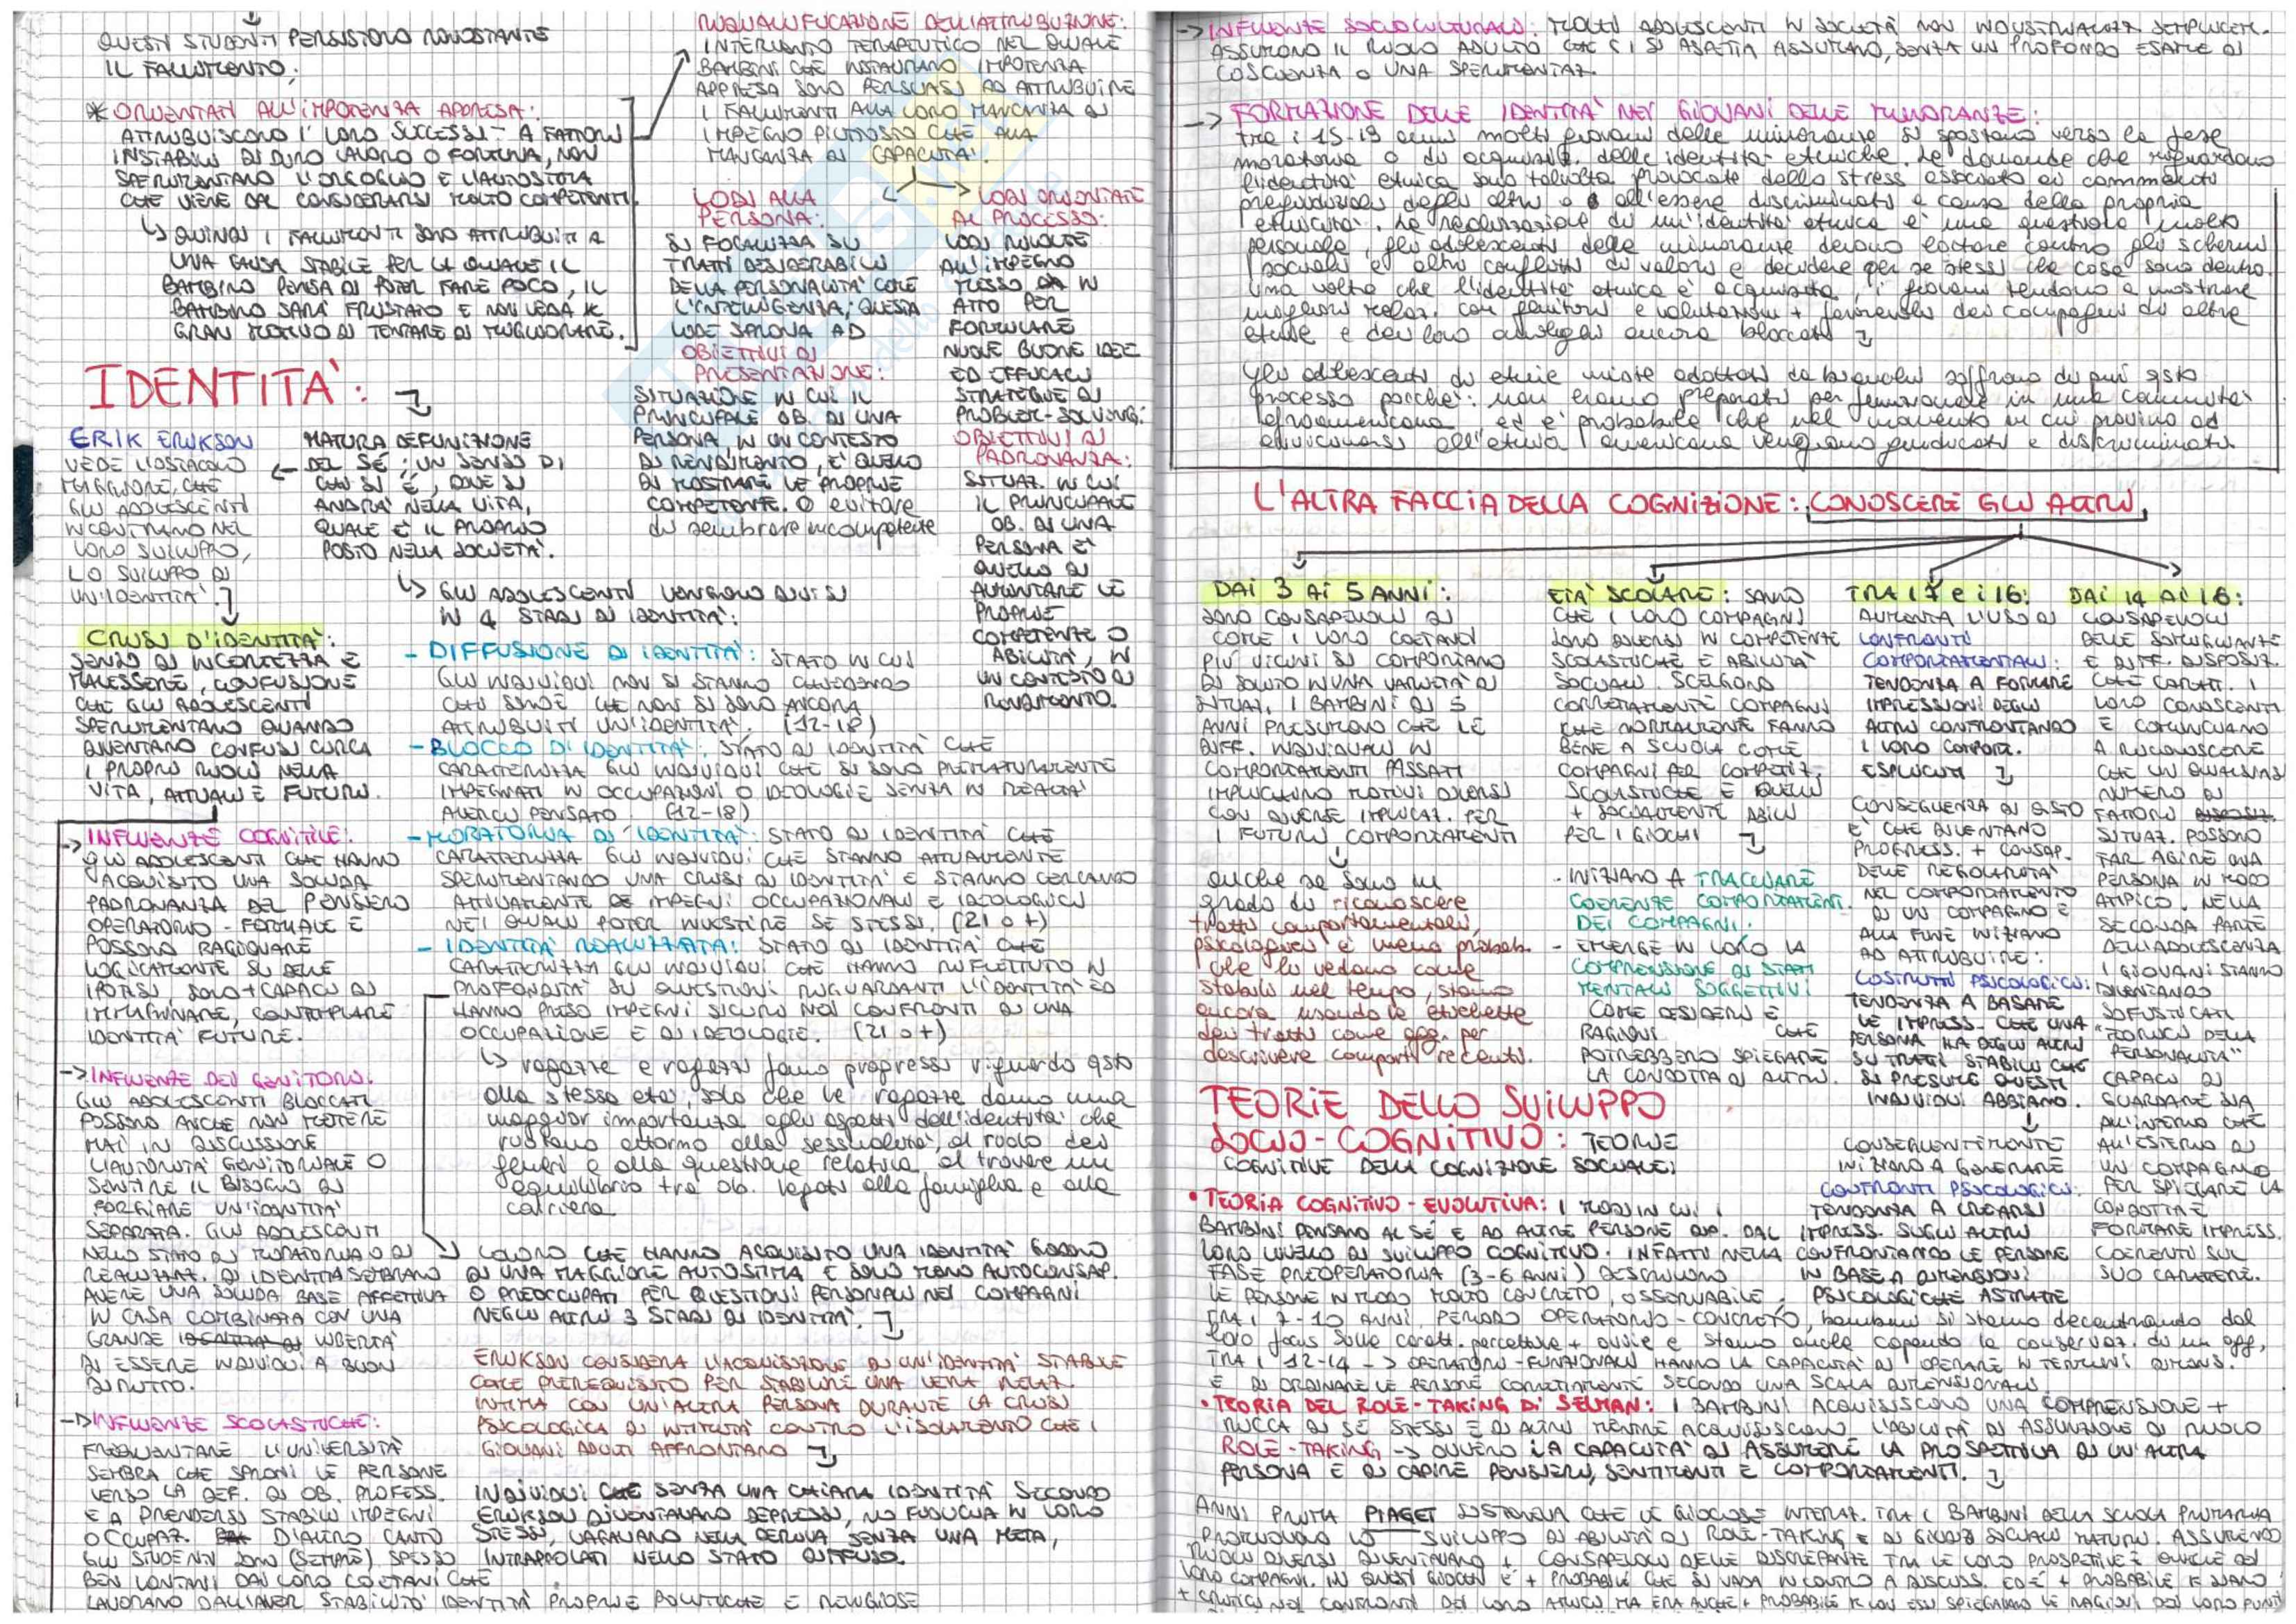 QUESTI STUDENTI PERSISTONO NONOSTANTE
IL FALLIMENTO;
* ORIENTATI ALL'IMPOTENZA APPRESA:
ATTRIBUISCONO I LORO SUCCESSI A FATTORI
INSTABILI DI DURO LAVORO O FORTUNA, NON
SPERIMENTANO L'ORGOGLIO E L'AUTOSTIMA
CHE VIENE DAL CONSIDERARSI MOLTO COMPETENTI.
↳ QUINDI I FALLIMENTI SONO ATTRIBUITI A
UNA CAUSA STABILE PER LA QUALE IL
BAMBINO PENSA DI POTER FARE POCO, IL
BAMBINO SARÀ FRUSTATO E NON VEDRÀ IL
GRAN MOTIVO DI TENTARE DI MIGLIORARE.
RIQUALIFICAZIONE DELL'ATTRIBUZIONE:
INTERVENTO TERAPEUTICO NEL QUALE
BAMBINI CHE INSTAURANO IMPOTENZA
APPRESA SONO PERSUASI AD ATTRIBUIRE
I FALLIMENTI ALLA LORO MANCANZA DI
IMPEGNO PIUTTOSTO CHE ALLA
MANCANZA DI CAPACITÀ.
LODI ALLA
PERSONA:
SI FOCALIZZA SU
TRATTI DESIDERABILI
DELLA PERSONALITÀ COME
L'INTELLIGENZA; QUESTA
LODE SPRONA AD
OBIETTIVI DI
PRESENTAZIONE:
SITUAZIONE IN CUI IL
PRINCIPALE OB. DI UNA
PERSONA, IN UN CONTESTO
DI RENDIMENTO, È QUELLO
DI MOSTRARE LE PROPRIE
COMPETENTE. O evitare
di sembrare incompetente
LODI ORIENTATE
AL PROCESSO:
LODI RIVOLTE
ALL'IMPEGNO
MESSO DA IN
ATTO PER
FORMULARE
NUOVE BUONE IDEE
ED EFFICACI
STRATEGIE DI
PROBLEM-SOLVING:
OBIETTIVI DI
PADRONANZA:
SITUAZ. IN CUI
IL PRINCIPALE
OB. DI UNA
PERSONA È
QUELLO DI
AUMENTARE LE
PROPRIE
COMPETENZE O
ABILITÀ, IN
UN CONTESTO DI
RENDIMENTO.
IDENTITÀ:
ERIK ERIKSON
VEDE L'OSTACOLO
MAGGIORE, CHE
GLI ADOLESCENTI
INCONTRANO NEL
LORO SVILUPPO,
LO SVILUPPO DI
UN'IDENTITÀ.
MATURA DEFINIZIONE
DEL SÉ; UN SENSO DI
CHI SI È, DOVE SI
ANDRÀ NELLA VITA,
QUALE È IL PROPRIO
POSTO NELLA SOCIETÀ.
↳ GLI ADOLESCENTI VENGONO DIVISI
IN 4 STADI DI IDENTITÀ:
CRISI D'IDENTITÀ:
SENSO DI INCERTEZZA E
MALESSERE, CONFUSIONE
CHE GLI ADOLESCENTI
SPERIMENTANO QUANDO
DIVENTANO CONFUSI CIRCA
I PROPRI RUOLI NELLA
VITA, ATTUALI E FUTURI.
- DIFFUSIONE DI IDENTITÀ: STATO IN CUI
GLI INDIVIDUI NON SI STANNO CHIEDENDO
CHI SONO E CHE NON SI SONO ANCORA
ATTRIBUITI UN'IDENTITÀ. (12-18)
- BLOCCO DI IDENTITÀ: STATO DI IDENTITÀ CHE
CARATTERIZZA GLI INDIVIDUI CHE SI SONO PREMATURAMENTE
IMPEGNATI IN OCCUPAZIONI O IDEOLOGIE SENZA IN REALTÀ
AVERCI PENSATO. (12-18)
- MORATORIA DI IDENTITÀ: STATO DI IDENTITÀ CHE
CARATTERIZZA GLI INDIVIDUI CHE STANNO ATTUALMENTE
SPERIMENTANDO UNA CRISI DI IDENTITÀ E STANNO CERCANDO
ATTIVAMENTE IMPEGNI OCCUPAZIONALI E IDEOLOGICI
NEI QUALI POTER INVESTIRE SE STESSI. (21 o +)
- IDENTITÀ REALIZZATA: STATO DI IDENTITÀ CHE
CARATTERIZZA GLI INDIVIDUI CHE HANNO RIFLETTUTO IN
PROFONDITÀ SU QUESTIONI RIGUARDANTI L'IDENTITÀ ED
HANNO PRESO IMPEGNI SICURI NEI CONFRONTI DI UNA
OCCUPAZIONE E DI IDEOLOGIE. (21 o +)
↳ ragazze e ragazzi fanno progressi riguardo qsto
alla stessa età, solo che le ragazze danno una
maggior importanza agli aspetti dell'identità che
ruotano attorno alla sessualità, al ruolo dei
generi e alla questione relativa, al trovare un
equilibrio tra ob. legati alla famiglia e alla
carriera
COLORO CHE HANNO ACQUISITO UNA IDENTITÀ GODONO
DI UNA MAGGIORE AUTOSTIMA E SONO MENO AUTOCONSAP.
O PREOCCUPATI PER QUESTIONI PERSONALI NEI COMPAGNI
NEGLI ALTRI 3 STADI DI IDENTITÀ.
ERIKSON CONSIDERA L'ACQUISIZIONE DI UN'IDENTITÀ STABILE
COME PREREQUISITO PER STABILIRE UNA VERA RELAZ.
INTIMA CON UN'ALTRA PERSONA DURANTE LA CRISI
PSICOLOGICA DI INTIMITÀ CONTRO L'ISOLAMENTO CHE I
GIOVANI ADULTI AFFRONTANO
INDIVIDUI SENZA UNA CHIARA IDENTITÀ SECONDO
ERIKSON DIVENTAVANO DEPRESSI, NO FIDUCIA IN LORO
STESSI, VAGAVANO NELLA DERIVA SENZA UNA META,
INTRAPPOLATI NELLO STATO DIFFUSO.
-> INFLUENZE COGNITIVE:
GLI ADOLESCENTI CHE HANNO
ACQUISITO UNA SOLIDA
PADRONANZA DEL PENSIERO
OPERATORIO-FORMALE E
POSSONO RAGIONARE
LOGICAMENTE SU DELLE
IPOTESI, SONO + CAPACI DI
IMMAGINARE, CONTEMPLARE
IDENTITÀ FUTURE.
-> INFLUENZE DEI GENITORI:
GLI ADOLESCENTI BLOCCATI
POSSONO ANCHE NON METTERE
MAI IN DISCUSSIONE
L'AUTORITÀ GENITORIALE O
SENTIRE IL BISOGNO DI
FORGIARE UN'IDENTITÀ
SEPARATA. GLI ADOLESCENTI
NELLO STATO DI MORATORIA O DI
REALIZZAZ. DI IDENTITÀ SEMBRANO
AVERE UNA SOLIDA BASE AFFETTIVA
IN CASA COMBINATA CON UNA
GRANDE LIBERTÀ
DI ESSERE INDIVIDUI A BUON
DIRITTO.
-> INFLUENZE SCOLASTICHE:
FREQUENTARE L'UNIVERSITÀ
SEMBRA CHE SPRONI LE PERSONE
VERSO LA DEF. DI OB. PROFESS.
E A PRENDERSI STABILI IMPEGNI
OCCUPAZ. D'ALTRO CANTO
GLI STUDENTI SONO (SEMPRE) SPESSO
BEN LONTANI DAI LORO COETANEI CHE
LAVORANO DALL'AVER STABILITO IDENTITÀ PROPRIE POLITICHE E RELIGIOSE
-> INFLUENZE SOCIOCULTURALI: MOLTI ADOLESCENTI IN SOCIETÀ NON INDUSTRIALIZZ. SEMPLICEM.
ASSUMONO IL RUOLO ADULTO CHE CI SI ASPETTA ASSUMANO, SENZA UN PROFONDO ESAME DI
COSCIENZA O UNA SPERIMENTAZ.
-> FORMAZIONE DELLE IDENTITÀ NEI GIOVANI DELLE MINORANZE:
tra i 15-19 anni molti giovani delle minoranze si spostano verso la fase
moratoria o di acquisiz. delle identità etniche. Le domande che riguardano
l'identità etnica sono talvolta provocate dallo stress associato ai commenti
pregiudiziali degli altri o all'essere discriminati a causa della propria
etnicità. La realizzazione di un'identità etnica è una questione molto
personale, gli adolescenti delle minoranze devono lottare contro gli schemi
sociali e altri conflitti di valori e decidere per se stessi che cosa sono dentro.
Una volta che l'identità etnica è acquisita, i giovani tendono a mostrare
migliori relaz. con genitori e valutazioni + favorevoli dei compagni di altre
etnie e dei loro coetanei ancora bloccati
Gli adolescenti di etnie miste adottati da bianchi soffrono di più qsto
processo poiché: non erano preparati per funzionare in una comunità
afroamericana ed è probabile che nel momento in cui provino ad
avvicinarsi all'etnia americana vengano giudicati e discriminati.
L'ALTRA FACCIA DELLA COGNIZIONE: CONOSCERE GLI ALTRI
DAI 3 AI 5 ANNI:
SONO CONSAPEVOLI DI
COME I LORO COETANEI
PIÙ VICINI SI COMPORTANO
DI SOLITO IN UNA VARIETÀ DI
SITUAZ. I BAMBINI DI 5
ANNI PRESUMONO CHE LE
DIFF. INDIVIDUALI IN
COMPORTAMENTI PASSATI
IMPLICHINO MOTIVI DIVERSI
CON DIVERSE IMPLICAZ. PER
I FUTURI COMPORTAMENTI
anche se sono in
grado di riconoscere
tratti comportamentali,
psicologici è meno probab.
che li vedano come
stabili nel tempo, stanno
ancora usando le etichette
dei tratti come agg. per
descrivere comport. recenti.
ETÀ SCOLARE: SANNO
CHE I LORO COMPAGNI
SONO DIVERSI IN COMPETENTE
SCOLASTICHE E ABILITÀ
SOCIALI. SCELGONO
CORRETTAMENTE COMPAGNI
CHE NORMALMENTE FANNO
BENE A SCUOLA COME
COMPAGNI PER COMPETIZ.
SCOLASTICHE E QUELLI
+ SOCIALMENTE ABILI
PER I GIOCHI
- INIZIANO A TRACCIARE
COERENZE COMPORTAMENT.
DEI COMPAGNI;
- EMERGE IN LORO LA
COMPRENSIONE DI STATI
MENTALI SOGGETTIVI
COME DESIDERI E
RAGIONI CHE
POTREBBERO SPIEGARE
LA CONDOTTA DI ALTRI.
TRA I 7 e i 16:
AUMENTA L'USO DI
CONFRONTI
COMPORTAMENTALI:
TENDENZA A FORMARE
IMPRESSIONI DEGLI
ALTRI CONFRONTANDO
I LORO COMPORT.
ESPLICITI
CONSEGUENZA DI QSTO
È CHE DIVENTANO
PROGRESS. + CONSAP.
DELLE REGOLARITÀ
NEL COMPORTAMENTO
DI UN COMPAGNO E
ALLA FINE INIZIANO
AD ATTRIBUIRE:
COSTRUTTI PSICOLOGICI:
TENDENZA A BASARE
LE IMPRESS. CHE UNA
PERSONA HA DEGLI ALTRI
SU TRATTI STABILI CHE
SI PRESUME QUESTI
INDIVIDUI ABBIANO.
CONSEGUENTEMENTE
INIZIANO A GENERARE
CONFRONTI PSICOLOGICI:
TENDENZA A CREARSI
IMPRESS. SUGLI ALTRI
CONFRONTANDO LE PERSONE
IN BASE A DIMENSIONI
PSICOLOGICHE ASTRATTE
DAI 14 AI 16:
CONSAPEVOLI
DELLE SOMIGLIANTE
E DIFF. DISPOSIZ.
CHE CARATT. I
LORO CONOSCENTI
E COMINCIANO
A RICONOSCERE
CHE UN QUALSIASI
NUMERO DI
FATTORI
SITUAZ. POSSONO
FAR AGIRE UNA
PERSONA IN MODO
ATIPICO. NELLA
SECONDA PARTE
DELL'ADOLESCENZA
I GIOVANI STANNO
DIVENTANDO
SOFISTICATI
"TEORICI DELLA
PERSONALITÀ"
CAPACI DI
GUARDARE SIA
ALL'INTERNO CHE
ALL'ESTERNO DI
UN COMPAGNO
PER SPIEGARE LA
CONDOTTA E
FORMARE IMPRESS.
COERENTI SUL
SUO CARATTERE.
TEORIE DELLO SVILUPPO
SOCIO-COGNITIVO: TEORIE
COGNITIVE DELLA COGNIZIONE SOCIALE:
• TEORIA COGNITIVO-EVOLUTIVA: I MODI IN CUI I
BAMBINI PENSANO AL SÉ E AD ALTRE PERSONE DIP. DAL
LORO LIVELLO DI SVILUPPO COGNITIVO. INFATTI NELLA
FASE PREOPERATORIA (3-6 ANNI) DESCRIVONO
LE PERSONE IN MODO MOLTO CONCRETO, OSSERVABILE;
TRA I 7-10 ANNI, PERIODO OPERATORIO-CONCRETO, bambini si stanno decentrando dal
loro focus sulle caratt. percettive + ovvie e stanno anche capendo la conservaz. di un ogg,
TRA I 12-14 -> OPERATORI-FUNZIONALI HANNO LA CAPACITÀ DI OPERARE IN TERMINI DIMENS.
E DI ORDINARE LE PERSONE CORRETTAMENTE SECONDO UNA SCALA DIMENSIONALE.
• TEORIA DEL ROLE-TAKING DI SELMAN: I BAMBINI ACQUISISCONO UNA COMPRENSIONE +
RICCA DI SÉ STESSI E DI ALTRI MENTRE ACQUISISCONO L'ABILITÀ DI ASSUNZIONE DI RUOLO
ROLE-TAKING -> OVVERO LA CAPACITÀ DI ASSUMERE LA PROSPETTIVA DI UN'ALTRA
PERSONA E DI CAPIRE PENSIERI, SENTIMENTI E COMPORTAMENTI.
ANNI PRIMA PIAGET SOSTENEVA CHE LE GIOCOSE INTERAZ. TRA I BAMBINI DELLA SCUOLA PRIMARIA
PROMUOVONO LO SVILUPPO DI ABILITÀ DI ROLE-TAKING E DI GIUDIZI SOCIALI MATURI. ASSUMENDO
RUOLI DIVERSI DIVENTAVANO + CONSAPEVOLI DELLE DISCREPANTE TRA LE LORO PROSPETTIVE E QUELLE DEI
LORO COMPAGNI. IN QUESTI GIOCHI È + PROBABILE CHE SI VADA INCONTRO A DISCUSS. ED È + PROBABILE K SIANO
+ CRITICI NEI CONFRONTI DEI LORO AMICI MA ERA ANCHE + PROBABILE K CON ESSI SPIEGAVANO LE RAGIONI DEI LORO PUNTI